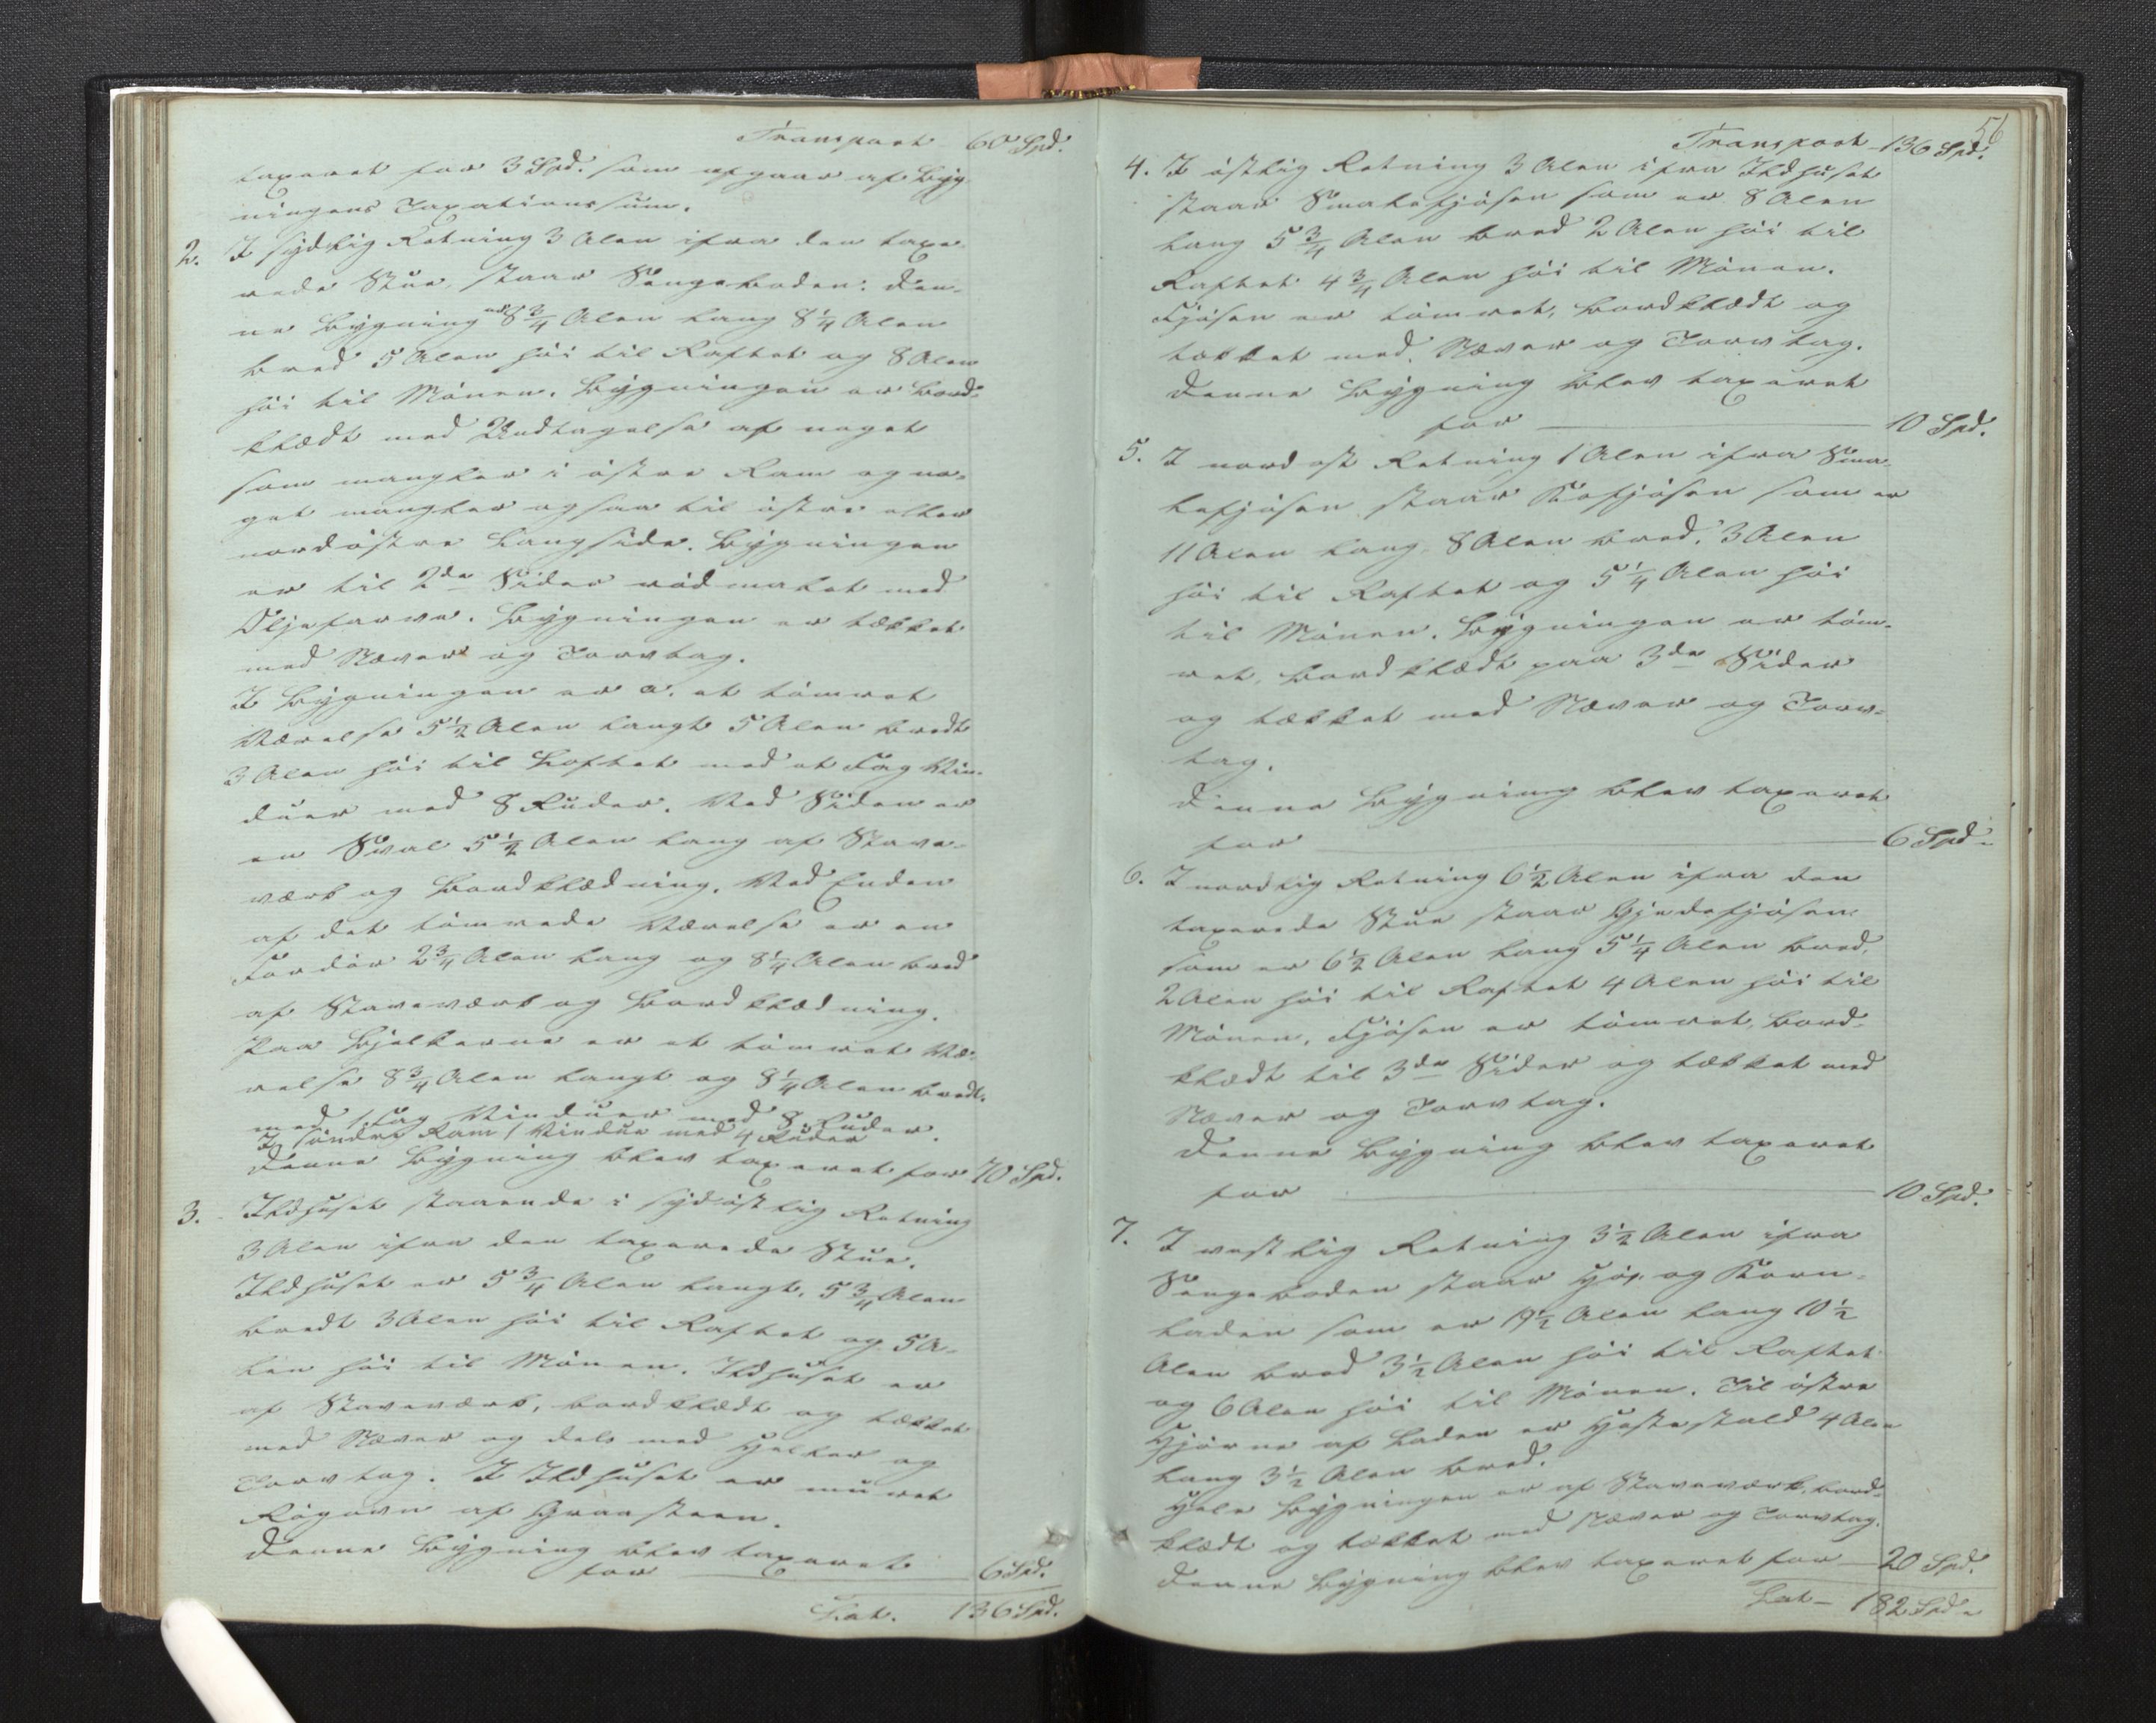 Transport 60 Spd.
taxeret for 3 Spd. som afgaar af Byg-
ningens Taxationssum.
2. I sydlig Retning 3 Alen ifra den taxe-
rede Stue, staar Sengeboden: den-
ne Bygning er 8 3/4 Alen lang 8 1/4 Alen
bred 5 Alen høi til Raftet og 8 Alen
høi til Mønen. Bygningen er bord-
klædt med Undtagelse af noget
som mangler i østre Ram og no-
get mangler ogsaa til østre eller
nordøstre Langside. Bygningen
er til 2de Sider rødmalet med
Oljefarve. Bygningen er tækket
med Næver og Torvtag.
I Bygningen er a. et tømret
Værelse 5 1/2 Alen langt 5 Alen bredt
3 Alen høi til Loftet med et Fag Vin-
duer med 8 Ruder. Ved Siden er
en Sval 5 1/2 Alen lang af Stave-
værk og Bordklædning. Ved Enden
af det tømrede Værelse er en
Fordør 2 3/4 Alen lang og 8 1/4 Alen bred
af Staveværk og Bordklædning.
Paa Bjelkerne er et tømret Væ-
relse 8 3/4 Alen langt og 8 1/4 Alen bredt.
med 1 Fag Vinduer med 8 Ruder.
I søndre Ram 1 Vindue med 4 Ruder
Denne Bygning blev taxeret for 70 Spd.
3. Ildhuset staaende i sydøstlig Retning
3 Alen ifra den taxerede Stue.
Ildhuset er 5 3/4 Alen langt, 5 3/4 Alen
bredt 3 Alen høi til Raftet og 5 A-
len høi til Mønen. Ildhuset er
af Staveværk, bordklædt og tækket
med Næver og dels med Heller og
Torvtag. I Ildhuset er muret
Rogovn af Graasteen.
Denne Bygning blev taxeret
for 6 Spd.
Lat. 136 Spd.
56
Transport 136 Spd.
4. I østlig Retning 3 Alen ifra Ildhuset
staar Smalefjøsen som er 8 Alen
lang 5 3/4 Alen bred 2 Alen høi til
Raftet 4 3/4 Alen høi til Mønen.
Fjøsen er tømret, bordklædt og
tækket med Næver og Torvtag.
Denne Bygning blev taxeret
for 10 Spd.
5. I nordost Retning 1 Alen ifra Sma-
lefjøsen staar Kofjøsen som er
11 Alen lang 8 Alen bred, 3 Alen
høi til Raftet og 5 1/4 Alen høi
til Mønen. Bygningen er tøm-
ret, bordklædt paa 3de Sider
og tækket med Næver og Torv-
tag.
Denne Bygning blev taxeret
for 6 Spd.
6. I nordlig Retning 6 1/2 Alen ifra den
taxerede Stue staar Gjedefjøsen
som er 6 1/2 Alen lang 5 1/4 Alen bred,
2 Alen høi til Raftet 4 Alen høi til
Mønen. Fjøsen er tømret, bord-
klædt til 3de Sider og tækket med
Næver og Torvtag.
Denne Bygning blev taxeret
for 10 Spd.
7. I vestlig Retning 3 1/2 Alen ifra
Sengeboden staar Hø- og Korn-
laden som er 19 1/2 Alen lang 10 1/2
Alen bred 3 1/2 Alen høi til Raftet
og 6 Alen høi til Mønen. Til østre
Hjørne af Laden er Hestestald 4 Alen
lang 3 1/2 Alen bred.
Hele Bygningen er af Staveværk, bord-
klædt og tækket med Næver og Torvtag.
Denne Bygning blev taxeret for 20 Spd.
Lat 182 Spd.